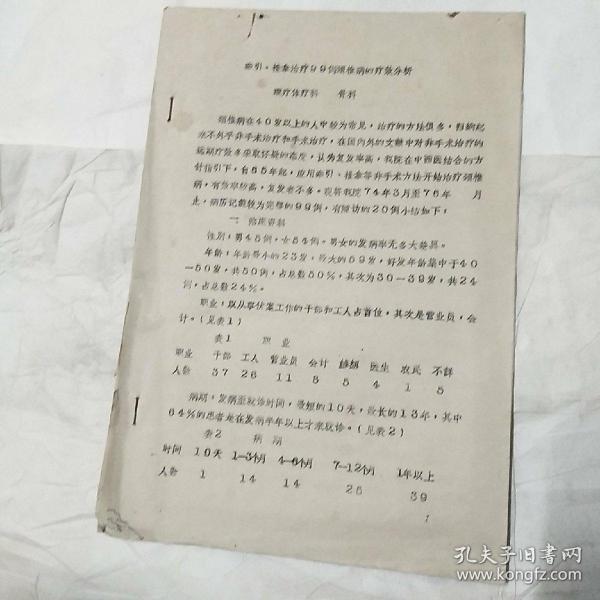 牵引、推拿治疗99例颈椎病的疗效分析
理疗体疗科 骨科
颈椎病在40岁以上的人中较为常见，治疗的方法很多，归纳起
来不外乎非手术治疗和手术治疗，在国内外的文献中对非手术治疗的
远期疗效多采取怀疑的态度，认为复发率高，我院在中西医结合的方
针指引下，自65年起，应用牵引、推拿等非手术方法开始治疗颈椎
病，有效率较高，复发者不多。现将我院74年3月至76年 月
止，病历记载较为完整的99例，有随访的20例小结如下：
一、临床资料
性别，男45例，女54例。男女的发病率无多大差异。
年龄：年龄最小的23岁，最大的69岁，好发年龄集中于40
—50岁，共50例，占总数50％，其次为30—39岁，共24
例，占总数24％。
职业：以从事伏案工作的干部和工人占首位，其次是营业员，会
计。（见表1）
表1 职业
职业 干部 工人 营业员 会计 医生 农民 不详
人数 37 26 11 5 4 1 5
病期：发病至就诊时间，最短的10天，最长的13年，其中
64％的患者是在发病半年以上才来就诊。（见表2）
表2 病期
时间 10天 1—3个月 4—6个月 7—12个月 1年以上
人数 1 14 14 25 39
1
孔夫子旧书网
www.kongfz.com